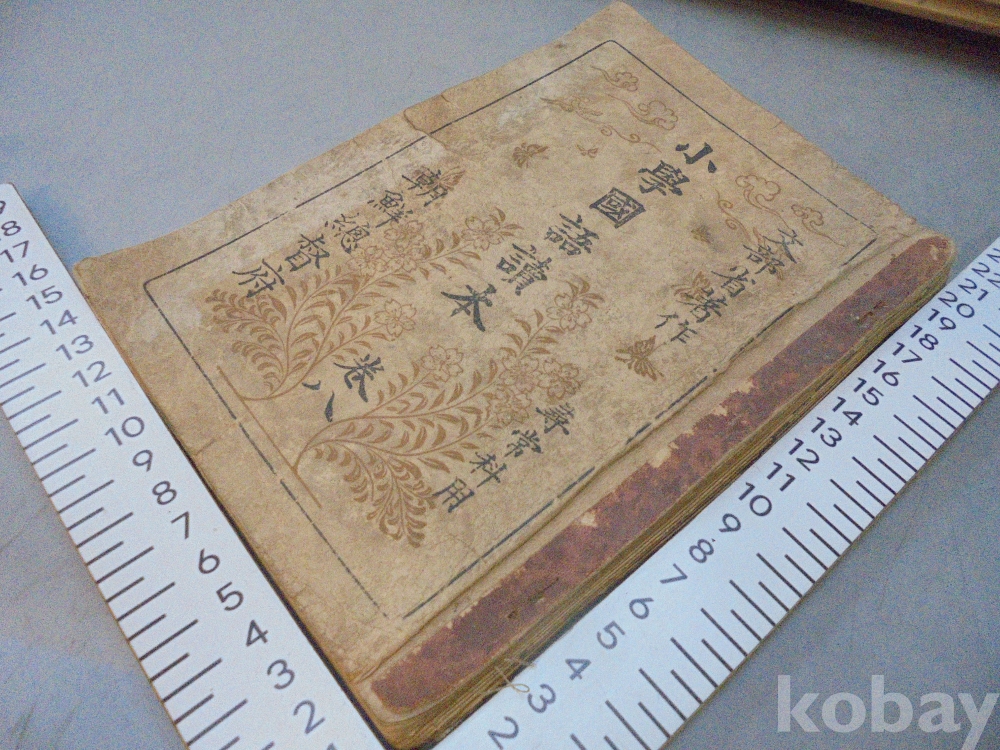 文部省著作
尋常科用
小學國語讀本 卷八
朝鮮總督府
9 18 17 16 15 14 13 12 11 10 9 8 7 6 5 4 3 2
2 3 4 5 6 7 8 9 10 11 12 13 14 15 16 17 18 19 20 21
kobay